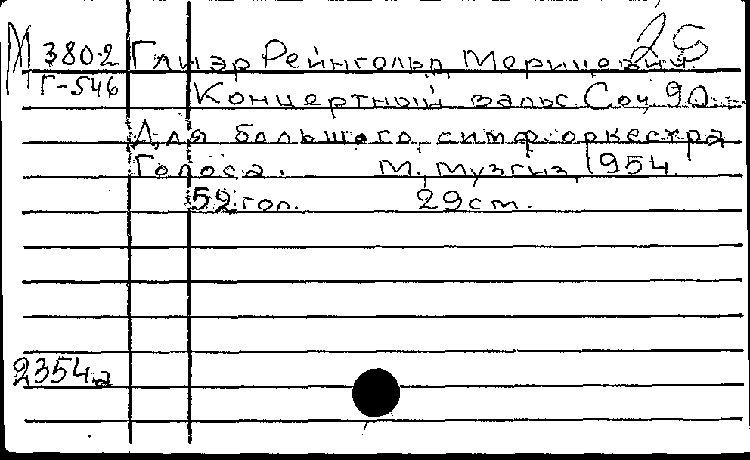 М 3802 Глиэр Рейнгольд Морицевич 25
Г-546
Концертный вальс Соч. 90.
Для большого симф. оркестра
Голоса. М., Музгиз, 1954.
52 гол. 29 см.
2354а